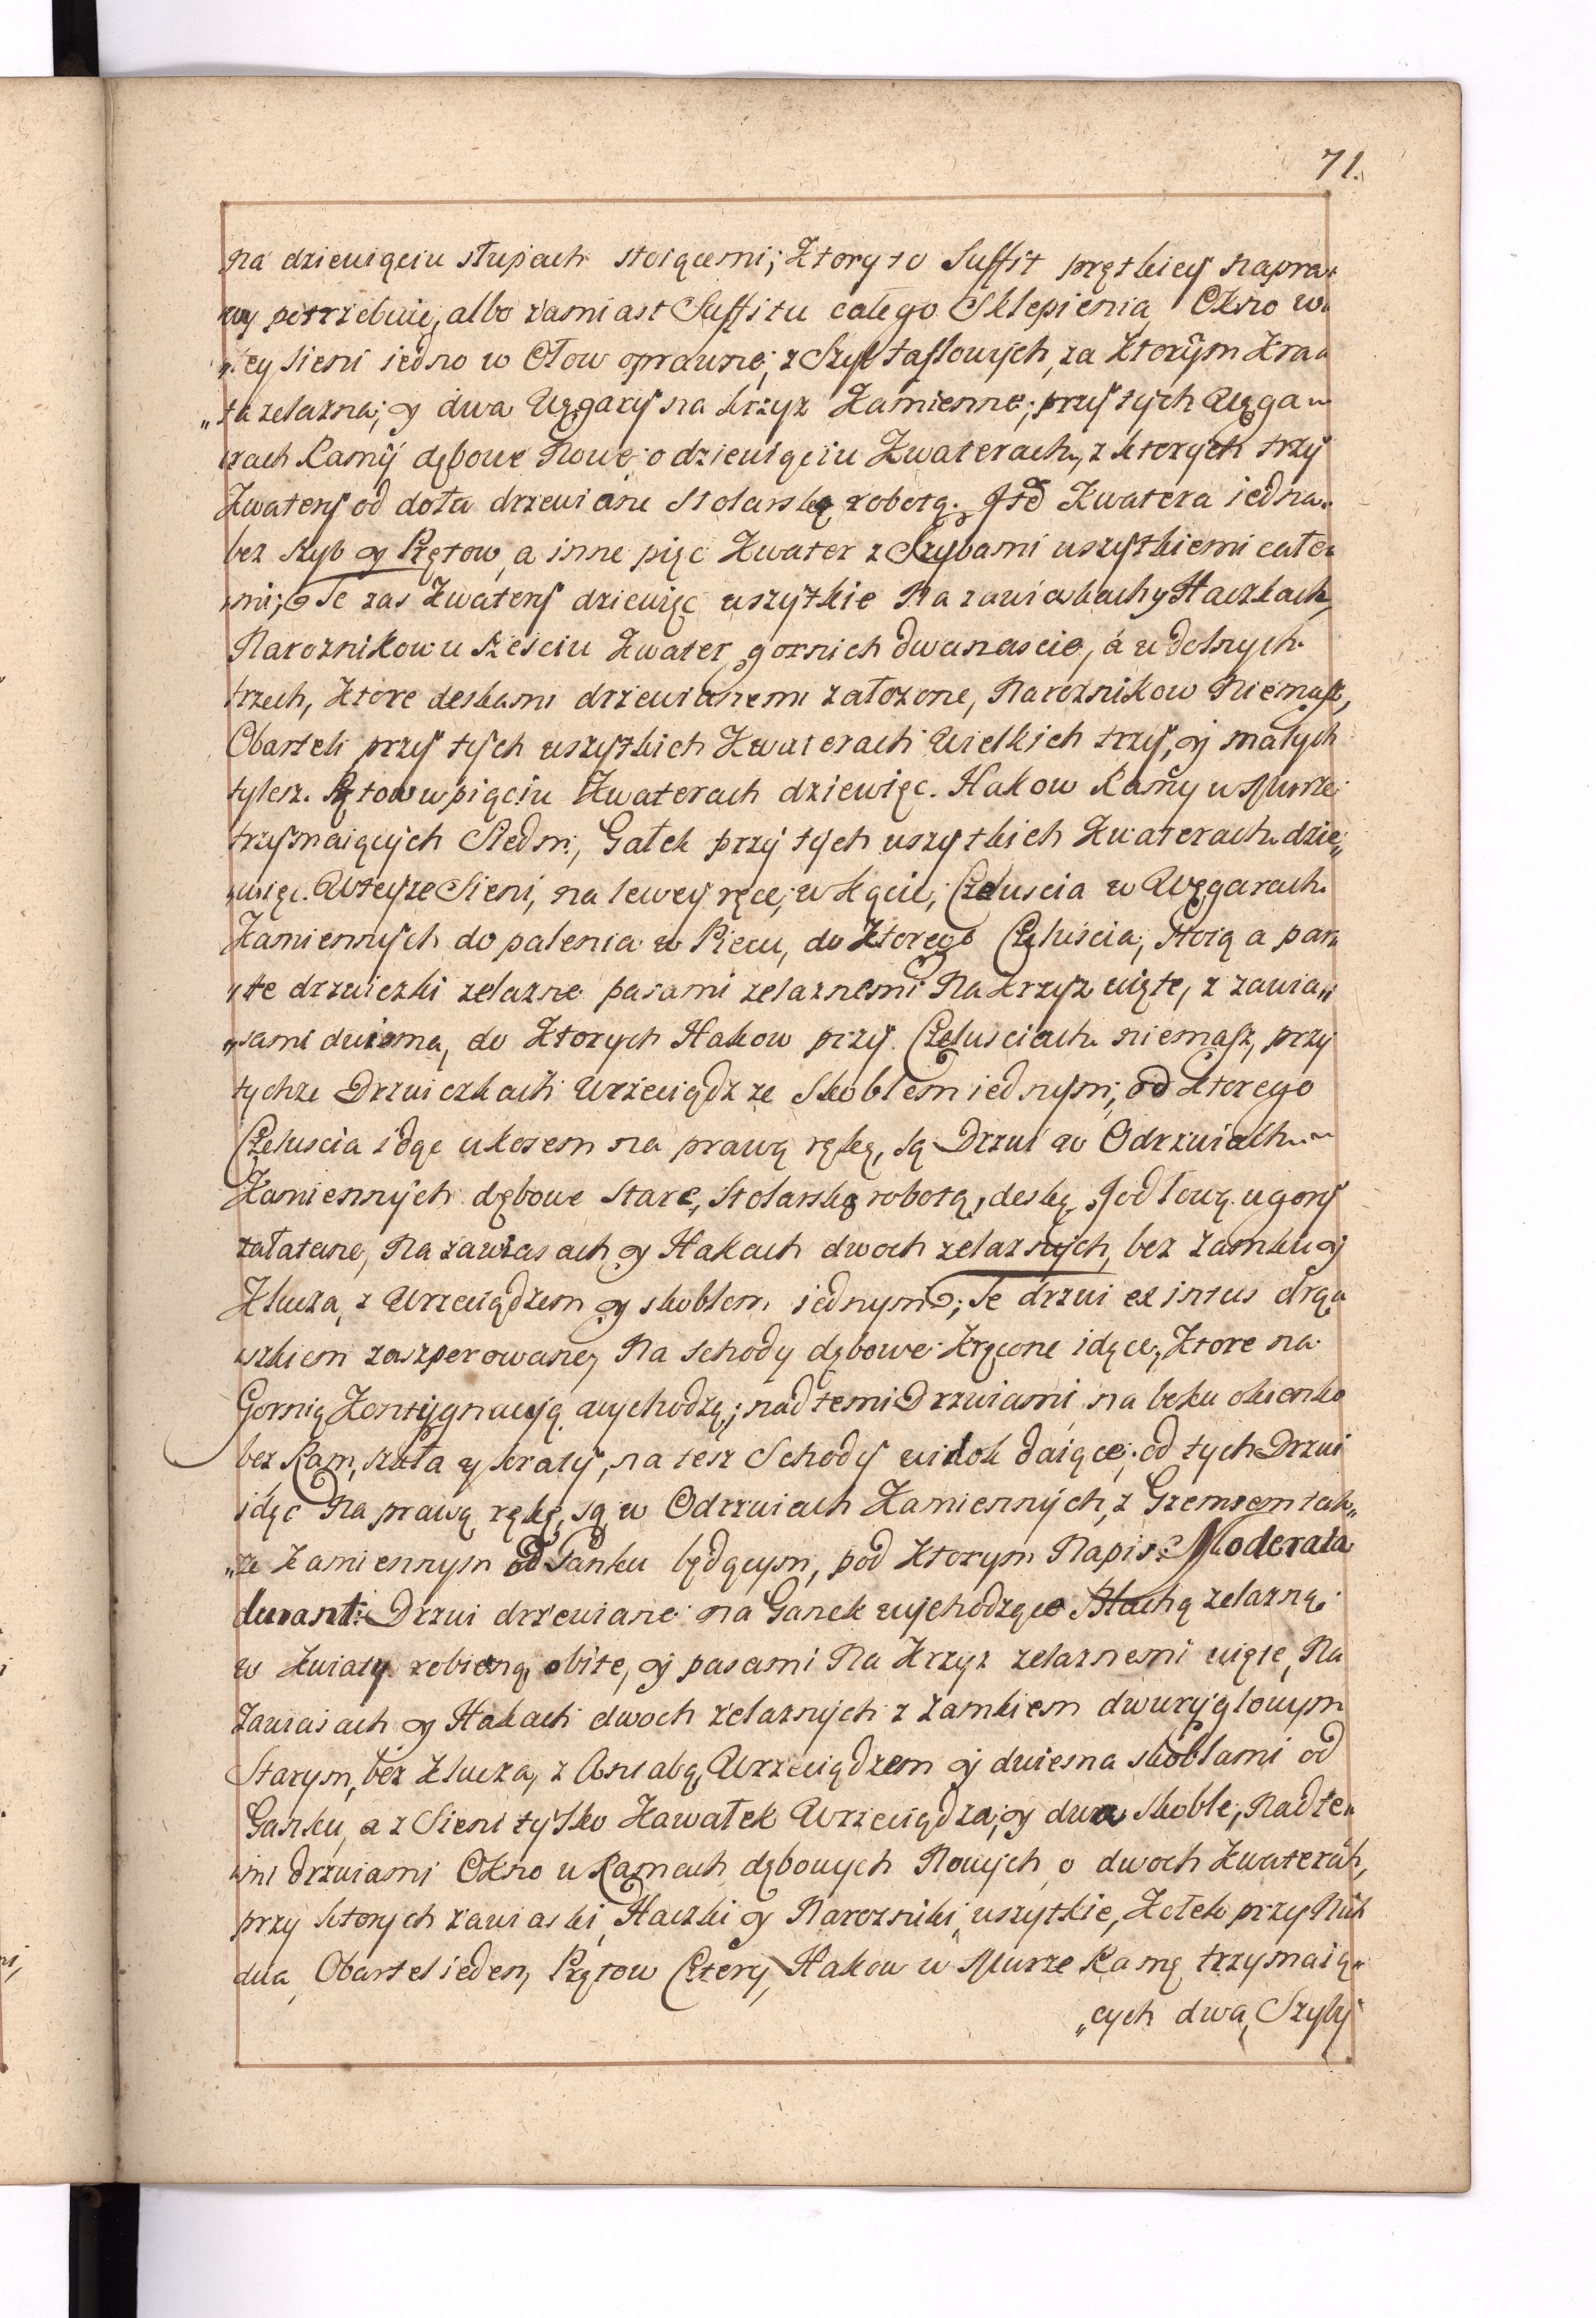 71.
na dziewięciu słupach stoiącemi; Ktory to Suffit prętkiey napra„
wy potrzebuie, albo zamiast Suffitu całego Sklepienia, Okno w
„tey sieni iedno w Ołow oprawne; z Szyb taflowych, za Ktorym Kra„
„ta zelazna; y dwa Węgary na krzyz Kamienne; przy tych Węga„
rach Ramy dębowe Nowe o dziewięciu Kwaterach, z ktorych trzy
Kwatery od dołu drzewiane Stolarską robotą. Ite͞ Kwatera iedna
bez szyb y Prętow, a inne pięc Kwater z Szybami uszytkiemi całe„
„mi; Te zas Kwatery dziewięc uszytkie Na zawiaskach y Haczkach,
Naroznikow u szesciu Kwater gornich dwanascie, á w dolnych
trzech, Ktore deskami drzewianemi załozone, Naroznikow Niemasz,
Obartek przy tych uszytkich Kwaterach Wielkich trzy, y małych
tylesz. Prętow w pięciu Kwaterach dziewięc. Hakow Ramy w Murze
trzymaiących Siedm, Gałek przy tych uszytkich Kwaterach dzie„
„więc. W teyze Sieni, na lewey ręce, w kącie, Czeluscia w Węgarach
Kamiennych do palenia w Piecu, do Ktorego Czeluscia, Stoią a par„
„te drzwiczki zelazne pasami zelaznemi Na Krzyz więte, z zawia„
„sami dwiema, do Ktorych Hakow przy Czelusciach niemasz, przy
tychze Drzwiczkach Wrzeciądz ze Skoblem iednym; od Ktorego
Czeluscia idąc ukosem na prawą rękę, są Drzwi w Odrzwiach
Kamiennych dębowe stare, Stolarską robotą, deską Jodłową u gory
załatane, Na zawiasach y Hakach dwoch zelaznych, bez zamku y
Klucza, z Wrzeciądzem y skoblem iednym; Te drzwi ex intus drą„
„szkiem zaszperowane, Na schody dębowe Kręcone idące, Ktore na
Gornią Kontygnacyą wychodzą; nad temi Drzwiami na boku okienko
bez Ram, szkła y kraty, na tesz Schody widok daiące; od tych Drzwi
idąc Na prawą rękę, są w Odrzwiach Kamiennych, z Gzemsem tak„
„ze Kamiennym od Ganku będącym, pod Ktorym Napis: Moderata
durant: Drzwi drzewiane na Ganek wychodzące Blachą zelazną
w Kwiaty robioną obite, y pasami Na Krzyz zelaznemi więte, Na
Zawiasach y Hakach dwoch zelaznych z zamkiem dwuryglowym
Starym, bez Klucza, z Antabą, Wrzeciądzem y dwiema skoblami od
Ganku, a z Sieni tylko Kawałek Wrzeciądza, y dwa skoble, Nad te„
„mi drzwiami Okno w Ramach dębowych Nowych o dwoch Kwaterach,
przy ktorych zawiaski, Haczki y Narozniki uszytkie, Kołek przy Nich
dwa, Obartel ieden, Prętow Cztery, Hakow w Murze Ramę trzymaią„
„cych dwa, Szyby